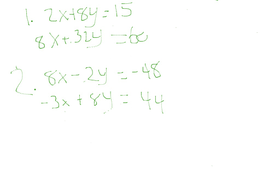 1. 2x+8y=15
8x+32y=60
2. 8x-2y=-48
-3x+8y=44